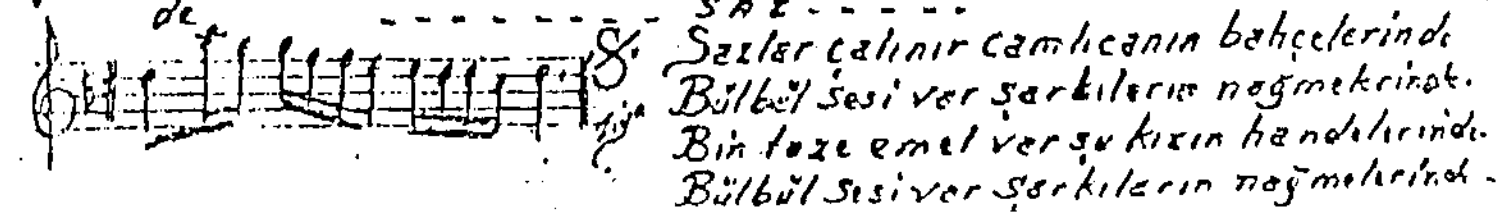 de - - - - - - - SAZ - - - - -
Sazlar çalınır Çamlıcanın bahçelerinde
Bülbül sesi var şarkıların nağmelerinde.
Bin taze emel var şu kızın handelerinde.
Bülbül sesi var şarkıların nağmelerinde.